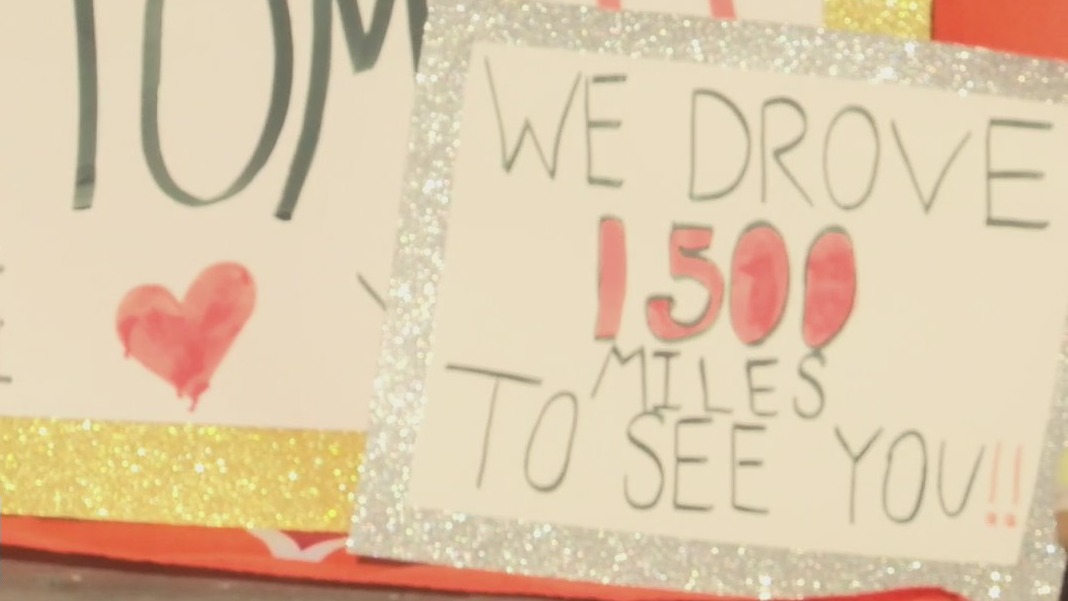 TOM
WE DROVE
1500
MILES
TO SEE YOU!!